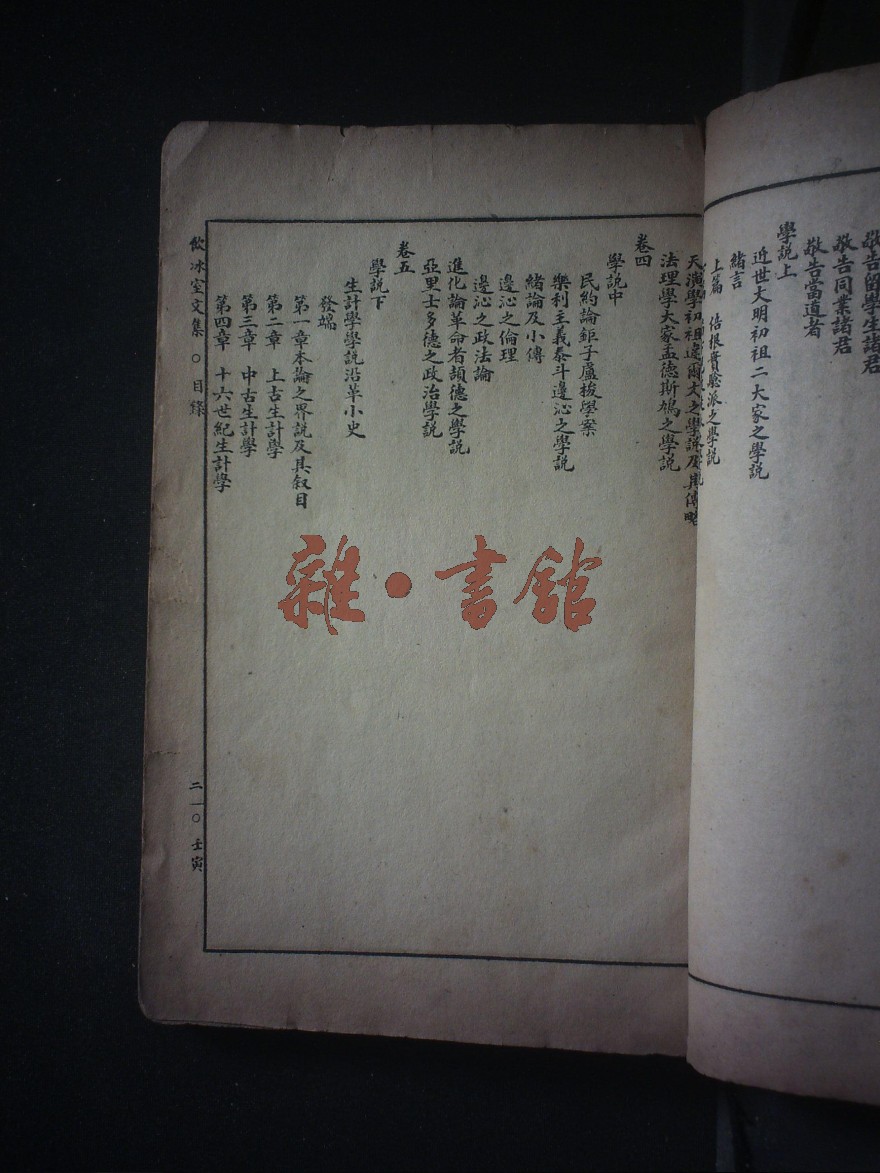 敬告留學生諸君
敬告同業諸君
敬告當道者
學說上
近世大明初祖二大家之學說
緒言
上篇 倍根實驗派之學說
天演學初祖達爾文之學說及其傳略
法理學大家孟德斯鳩之學說
卷四
學說中
民約論鉅子盧梭學案
樂利主義泰斗邊沁之學說
緒論及小傳
邊沁之倫理
邊沁之政法論
進化論革命者頡德之學說
亞里士多德之政治學說
卷五
學說下
生計學學說沿革小史
發端
第一章本論之界說及其叙目
第二章 上古生計學
第三章 中古生計學
第四章 十六世紀生計學
飲冰室文集 ○ 目錄
二一○ 壬寅
雜·書館